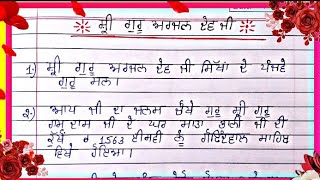 ਸ਼੍ਰੀ ਗੁਰੂ ਅਰਜਨ ਦੇਵ ਜੀ
1) ਸ਼੍ਰੀ ਗੁਰੂ ਅਰਜਨ ਦੇਵ ਜੀ ਸਿੱਖਾਂ ਦੇ ਪੰਜਵੇ
ਗੁਰੂ ਸਨ।
2) ਆਪ ਜੀ ਦਾ ਜਨਮ ਚੌਥੇ ਗੁਰੂ ਸ਼੍ਰੀ ਗੁਰੂ
ਰਾਮ ਦਾਸ ਜੀ ਦੇ ਘਰ ਮਾਤਾ ਭਾਨੀ ਜੀ ਦੀ
ਕੁੱਖੋਂ 1563 ਈਸਵੀ ਨੂੰ ਗੋਇੰਦਵਾਲ ਸਾਹਿਬ
ਵਿਖੇ ਹੋਇਆ।